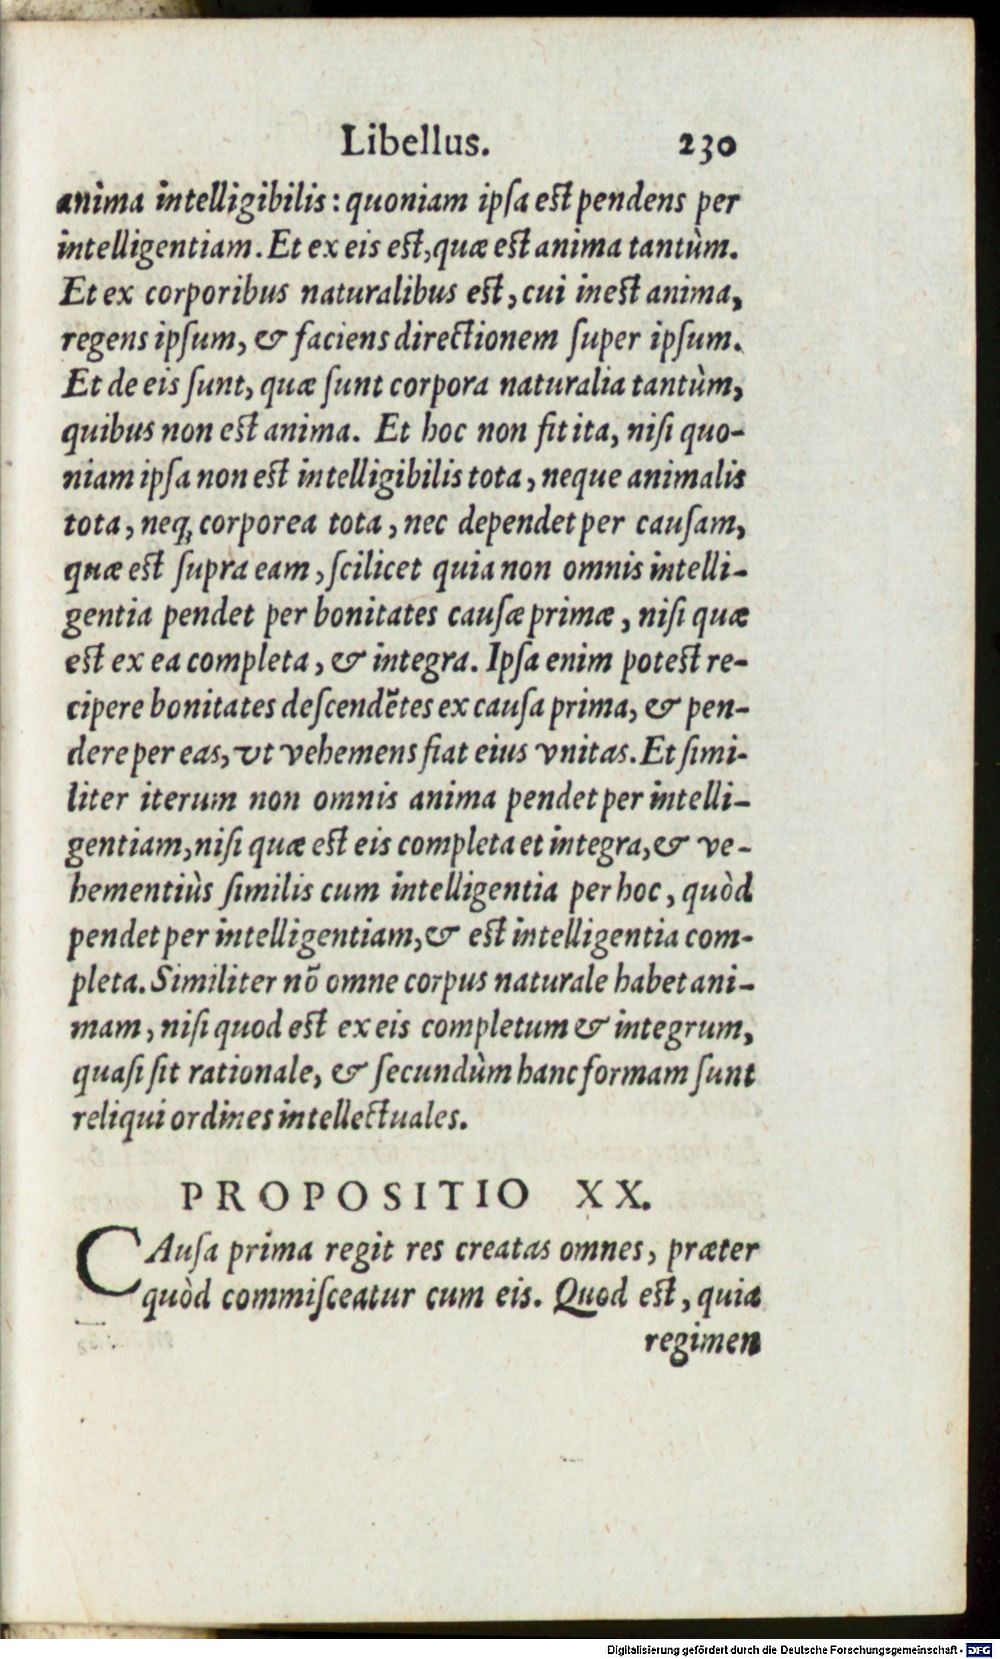 Libellus. 230
anima intelligibilis: quoniam ipſa eſt pendens per
intelligentiam. Et ex eis eſt, quæ eſt anima tantùm.
Et ex corporibus naturalibus eſt, cui ineſt anima,
regens ipſum, & faciens directionem ſuper ipſum.
Et de eis ſunt, quæ ſunt corpora naturalia tantùm,
quibus non eſt anima. Et hoc non fit ita, niſi quo-
niam ipſa non eſt intelligibilis tota, neque animalis
tota, neq; corporea tota, nec dependet per cauſam,
quæ eſt ſupra eam, ſcilicet quia non omnis intelli-
gentia pendet per bonitates cauſæ primæ, niſi quæ
eſt ex ea completa, & integra. Ipſa enim poteſt re-
cipere bonitates deſcendẽtes ex cauſa prima, & pen-
dere per eas, vt vehemens fiat eius vnitas. Et ſimi-
liter iterum non omnis anima pendet per intelli-
gentiam, niſi quæ eſt eis completa et integra, & ve-
hementiùs ſimilis cum intelligentia per hoc, quòd
pendet per intelligentiam, & eſt intelligentia com-
pleta. Similiter nõ omne corpus naturale habet ani-
mam, niſi quod eſt ex eis completum & integrum,
quaſi ſit rationale, & ſecundùm hanc formam ſunt
reliqui ordines intellectuales.
PROPOSITIO XX.
CAuſa prima regit res creatas omnes, præter
quòd commiſceatur cum eis. Quod eſt, quia
regimen
Digitalisierung gefördert durch die Deutsche Forschungsgemeinschaft - DFG